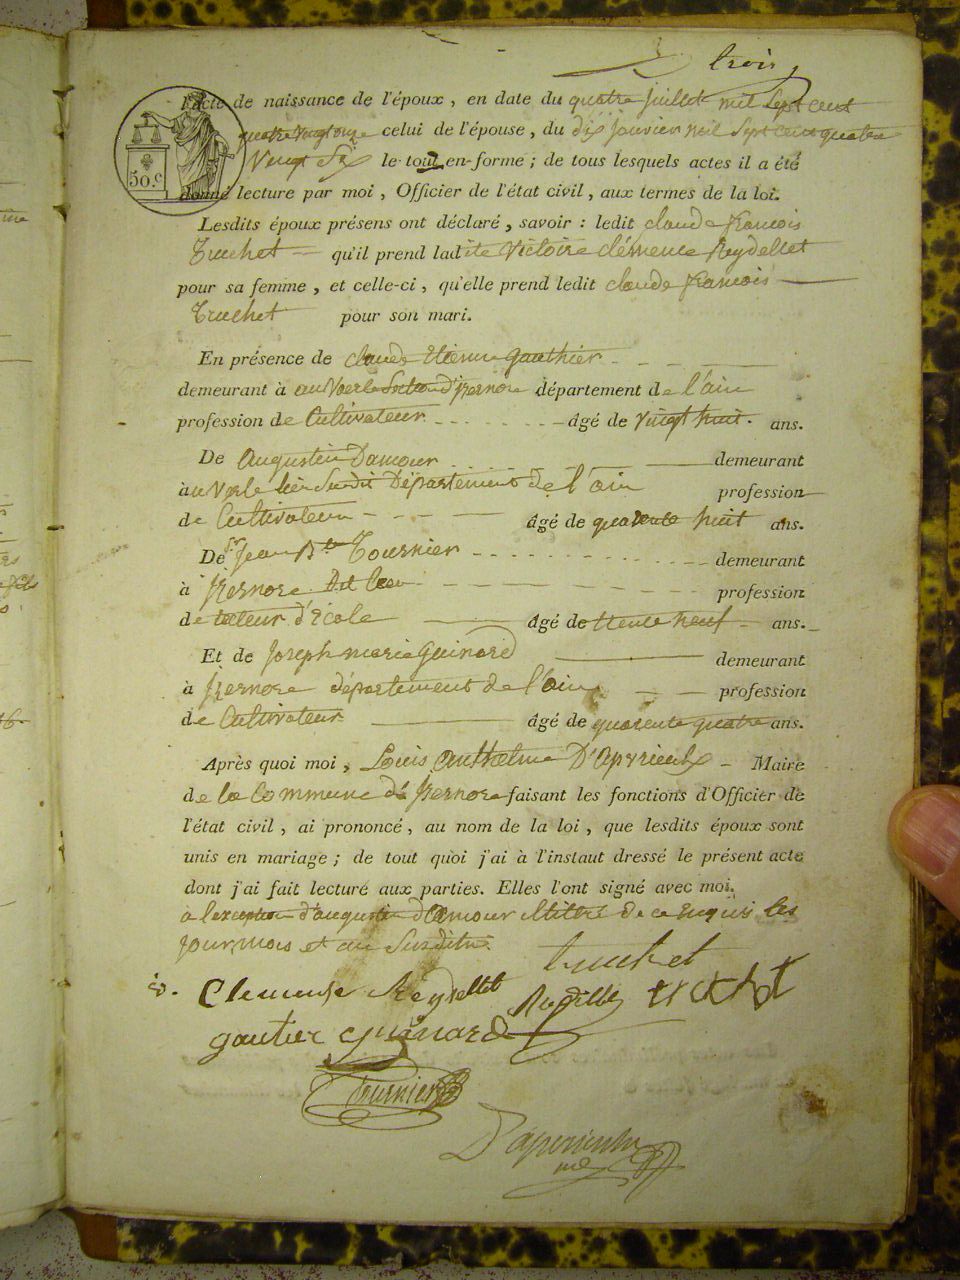 trois
l'acte de naissance de l'époux, en date du quatre Juillet mil Sept cent
quatre vingt onze celui de l'épouse, du dix Janvier mil Sept Cent quatre
Vingt Six le tout en forme; de tous lesquels actes il a été
50.c
donné lecture par moi, Officier de l'état civil, aux termes de la loi.
Lesdits époux présens ont déclaré, savoir : ledit claude François
Truchet qu'il prend ladite Victoire Clémence Reydellet
pour sa femme, et celle-ci, qu'elle prend ledit claude François
Truchet pour son mari.
En présence de claude Etienne Gauthier
demeurant à au Voerle d'Izernore département de l'ain
profession de Cultivateur âgé de Vingt huit ans.
De Augustin Damour demeurant
à au Voerle lieu Susdit Département de l'ain profession
de Cultivateur âgé de quarente huit ans.
De Sr Jean Bte Tournier demeurant
à Izernore dit lieu profession
de d'école âgé de trente neuf ans.
Et de Joseph marie Guinard demeurant
à Izernore département de l'ain profession
de Cultivateur âgé de quarente quatre ans.
Après quoi moi, Louis Anthelme D'Apvrieulx Maire
de la Commune d'Izernore faisant les fonctions d'Officier de
l'état civil, ai prononcé, au nom de la loi, que lesdits époux sont
unis en mariage; de tout quoi j'ai à l'instaut dressé le présent acte
dont j'ai fait lecture aux parties. Elles l'ont signé avec moi.
a l'exception d'augustin d'Amour illitéré de ce enquis les
jour, mois et an Susdits.
truchet
Clemense Reydellet truchet
gautier guinard
Tournier
D'apvrieulx